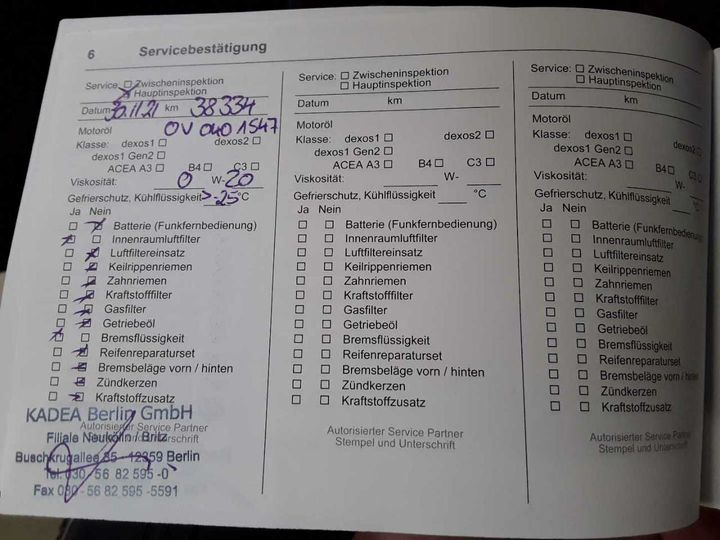 6 Servicebestätigung
Service: Zwischeninspektion
Hauptinspektion
Datum 30.11.21 km 38334
Motoröl OV 040 1547
Klasse: dexos1 dexos2
dexos1 Gen2
ACEA A3 B4 C3
Viskosität: 0 W- 20
Gefrierschutz, Kühlflüssigkeit >-25 °C
Ja Nein
Batterie (Funkfernbedienung)
Innenraumluftfilter
Luftfiltereinsatz
Keilrippenriemen
Zahnriemen
Kraftstofffilter
Gasfilter
Getriebeöl
Bremsflüssigkeit
Reifenreparaturset
Bremsbeläge vorn / hinten
Zündkerzen
Kraftstoffzusatz
KADEA Berlin GmbH
Autorisierter Service Partner
Filiale Neukölln / Britz
Stempel und Unterschrift
Buschkrugallee 85 - 12359 Berlin
Tel. 030 - 56 82 595 -0
Fax 030 - 56 82 595 -5591
Service: Zwischeninspektion
Hauptinspektion
Datum km
Motoröl
Klasse: dexos1 dexos2
dexos1 Gen2
ACEA A3 B4 C3
Viskosität: W-
Gefrierschutz, Kühlflüssigkeit °C
Ja Nein
Batterie (Funkfernbedienung)
Innenraumluftfilter
Luftfiltereinsatz
Keilrippenriemen
Zahnriemen
Kraftstofffilter
Gasfilter
Getriebeöl
Bremsflüssigkeit
Reifenreparaturset
Bremsbeläge vorn / hinten
Zündkerzen
Kraftstoffzusatz
Autorisierter Service Partner
Stempel und Unterschrift
Service: Zwischeninspektion
Hauptinspektion
Datum km
Motoröl
Klasse: dexos1 dexos2
dexos1 Gen2
ACEA A3 B4 C3
Viskosität: W-
Gefrierschutz, Kühlflüssigkeit °C
Ja Nein
Batterie (Funkfernbedienung)
Innenraumluftfilter
Luftfiltereinsatz
Keilrippenriemen
Zahnriemen
Kraftstofffilter
Gasfilter
Getriebeöl
Bremsflüssigkeit
Reifenreparaturset
Bremsbeläge vorn / hinten
Zündkerzen
Kraftstoffzusatz
Autorisierter Service Partner
Stempel und Unterschrift